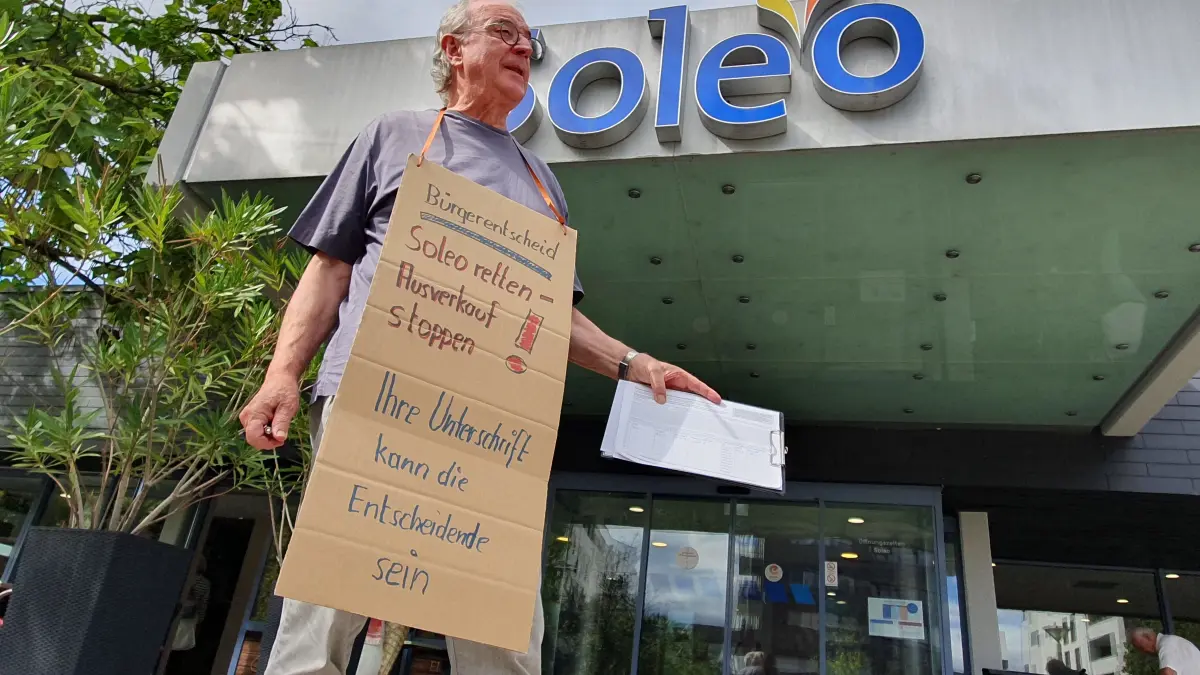 Soleo
Bürgerentscheid
Soleo retten –
Ausverkauf
stoppen !
Ihre Unterschrift
kann die
Entscheidende
sein
Öffnungszeiten
Soleo